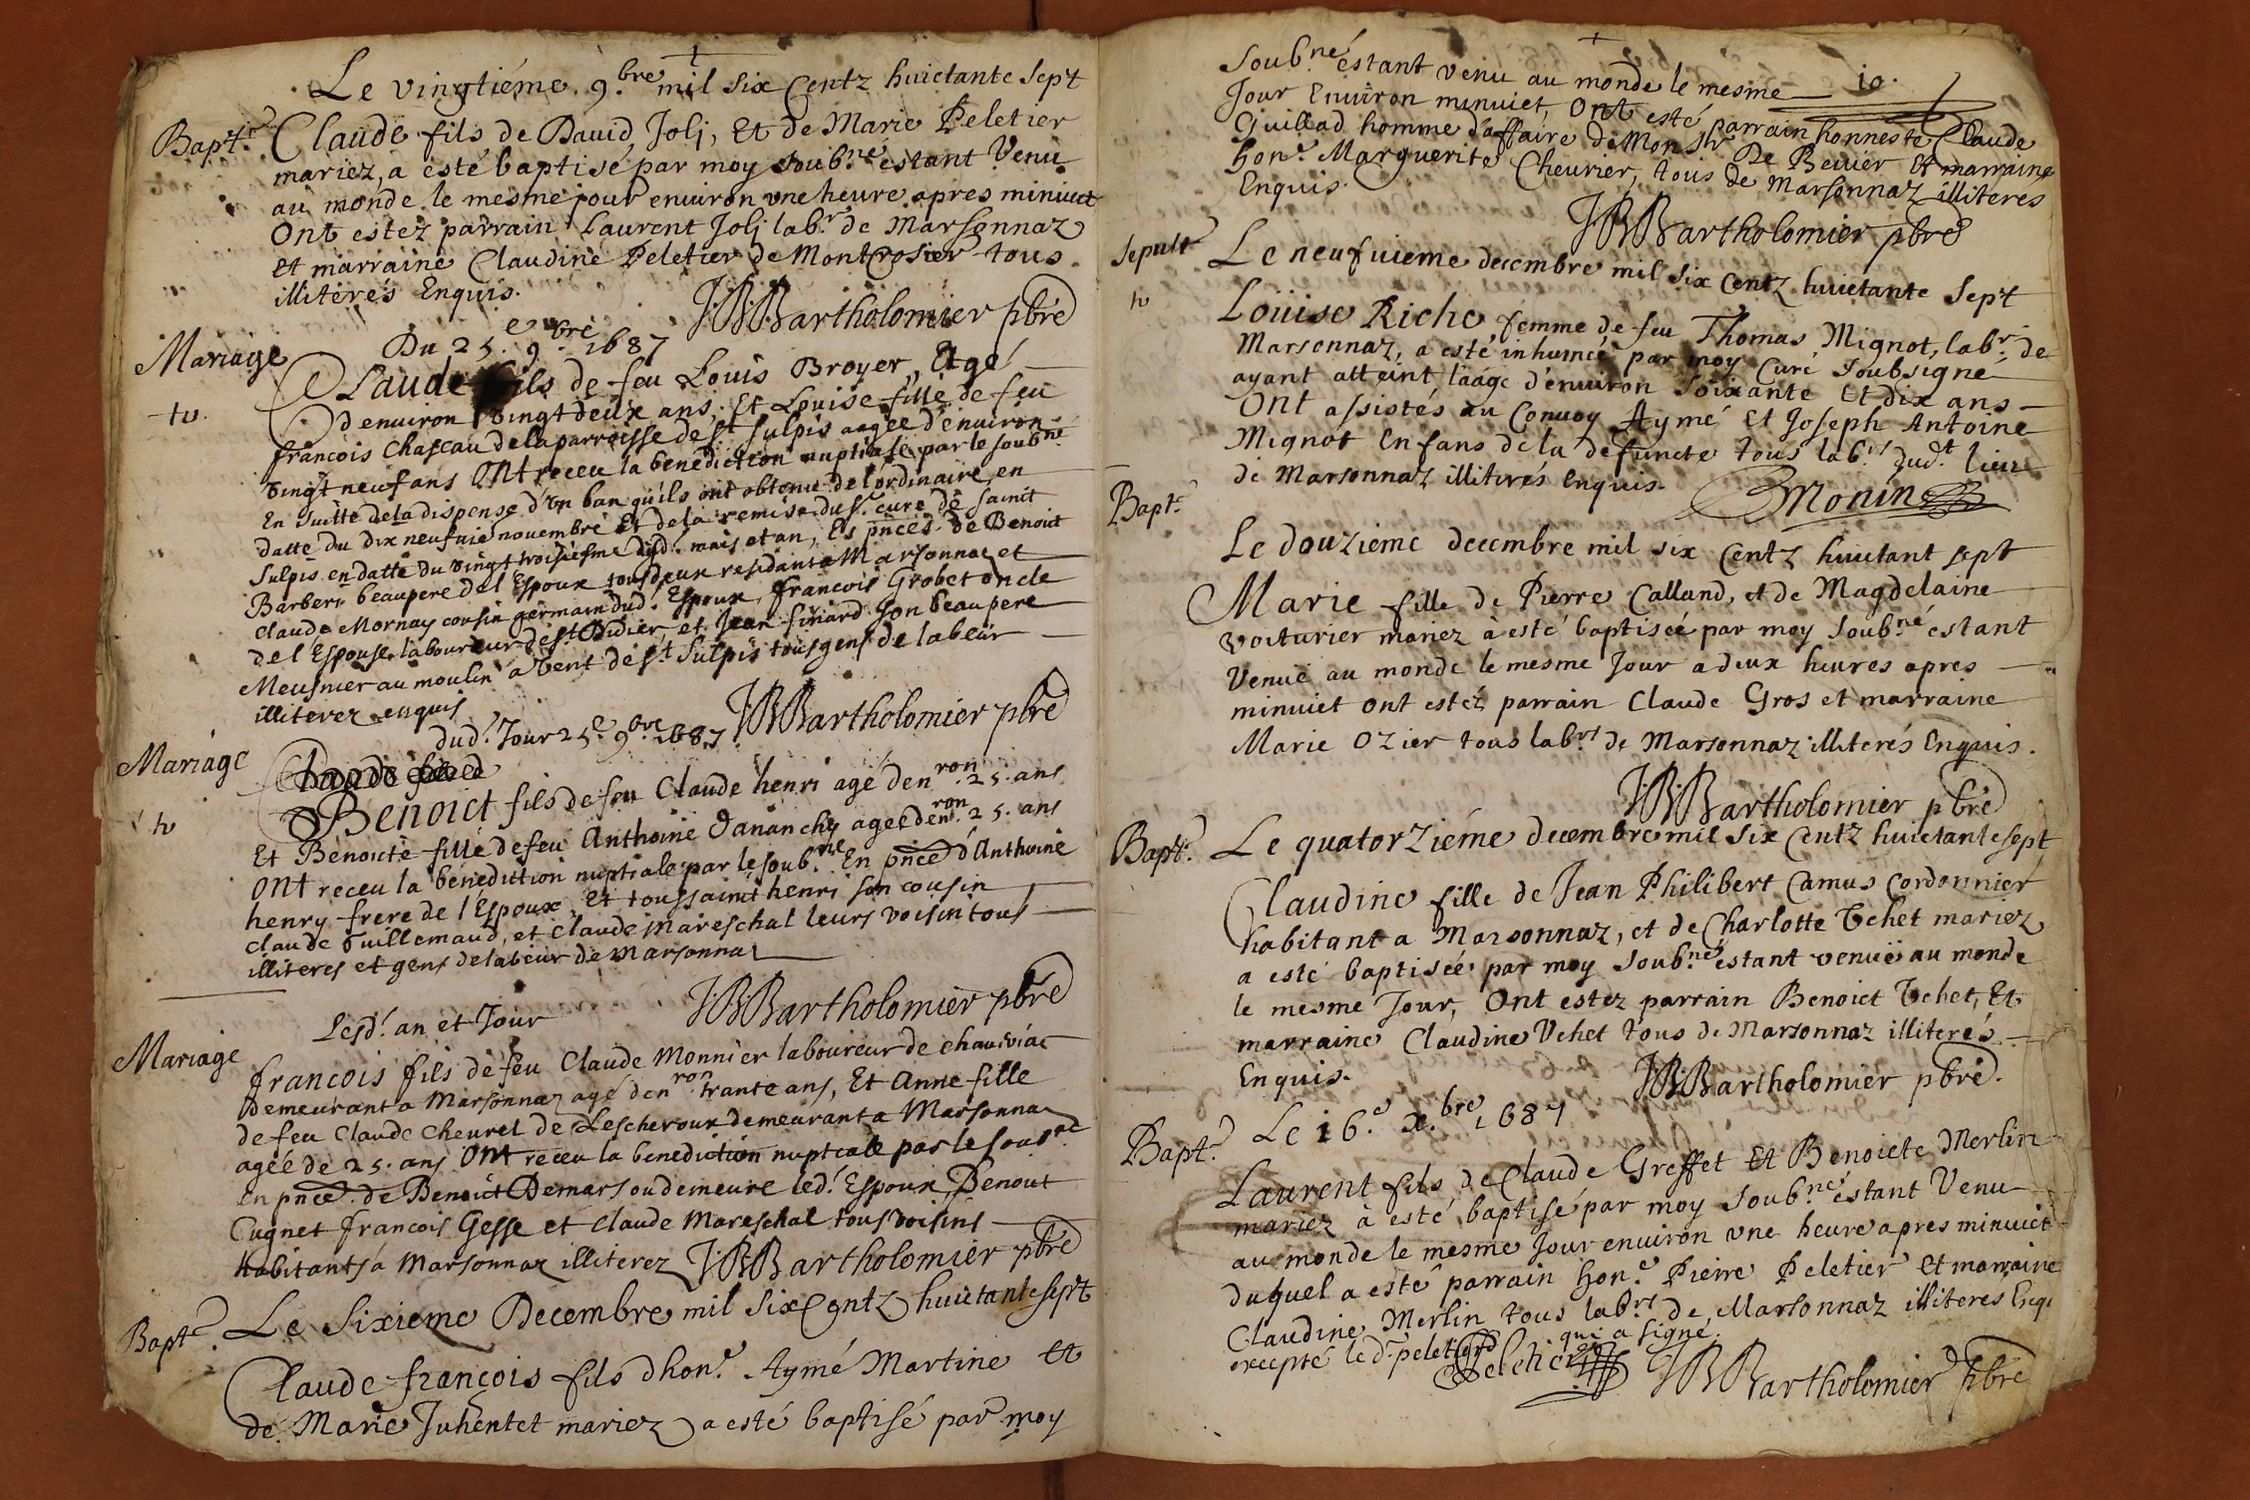 Le vingtiéme. 9.bre mil six Centz huictante sept
Bapt.e Claude fils de Dauid Jolj, Et de Marie Peletier
mariez, a esté baptisé par moy soub.né estant Venu
au monde le mesme jour enuiron vne heure apres minuict
Ont estez parrain Laurent Jolj lab.r de Marsonnaz
et marraine Claudine Peletier de Montrosier tous
illiterés Enquis.
J.B.Bartholomier pbre
Mariage Du 25.e 9.bre 1687
Claude fils de feu Louis Broyer, Agé
d enuiron vingt deux ans. Et Louise fille de feu
francois Chascau de la parroisse de s.t sulpis aagée d'enuiron
vingt neuf ans Ont receu la benediction nuptiale par le soub.né
En suitte de la dispense d'vn ban qu'ils ont obtenu de l'ordinaire, en
datte du dix neufuie novembre Et de la remise du s.r curé de sainct
Sulpis en datte du vingt troisiesme dud.t mois et an, Es pnces de Benoict
Barberi beaupere del Espoux tous deux residants a Marsonnaz et
Claude Mornay cousin germain dud.t Espoux, francois Grobet oncle
del Espouse laboureur de s.t Didier, et Jean finard son beaupere
Meusnier au moulin a vent de s.t Sulpis tous gens de labeur
illiterez enquis
J.B.Bartholomier pbre
dud.t Jour 25.e 9.bre 1687.
Mariage
tv
Benoict fils de feu Claude henri agé den.ron 25. ans
Et Benoicte fille de feu Anthoine Dananche agée den.ron 25. ans
Ont receu la benediction nuptiale par le soub.né En pnce d'Anthoine
henry frere de l'Espoux, Et toussainct henri son cousin
claude Guillemaud, et Claude Mareschal leurs voisin tous
illiteres et gens de labeur de Marsonnaz
J.B.Bartholomier pbre
Lesd.t an et Jour
Mariage francois fils de feu Claude Monnier laboureur de chauiviac
demeurant a Marsonnaz agé den.ron trante ans, Et Anne fille
de feu Claude cheurel de Lescheroux demeurant a Marsonnaz
agée de 25. ans Ont receu la benediction nuptiale par le soub.né
En pnce de Benoict Demars ou demeure led.t Espoux, Benoict
Cugnet francois Gesse et Claude Mareschal tous voisins
habitants á Marsonnaz illiterez J.B.Bartholomier pbre
Bapt.e Le Sixieme Decembre mil six Centz huictante sept
Claude francois fils dhon.e Aymé Martine Et
de Marie Juhentet mariez a esté baptisé par moy
soub.né estant venu au monde le mesme 10.
Jour Enuiron minuict, Ont esté parrain honneste Claude
Guillad homme d'affaire de Mons.r De Beuier Et marraine
hon.e Marguerite Cheurier, tous de Marsonnaz illiterés
Enquis.
J.B.Bartholomier pbre
sepult.e Le neufuieme decembre mil six Centz huictante Sept
tv
Loüise Riche femme de feu Thomas Mignot, lab.r de
Marsonnaz, a esté inhumée par moy Curé Soubsigné
ayant atteint l'aâge d'enuiron soixante Et dix ans
Ont assistés au Conuoy Aymé Et Joseph Antoine
Mignot Enfans de la defuncte tous lab.rs dud.t lieu
de Marsonnaz illiterés Enquis.
Monin
Bapt.e
Le douzieme decembre mil six Centz huictant sept
Marie fille de Pierre Calland, et de Magdelaine
Voiturier mariez à esté baptisée par moy soub.né estant
Venue au monde le mesme Jour a deux heures apres
minuict ont estéz parrain Claude Gros et marraine
Marie Ozier tous lab.rs de Marsonnaz illiterés Enquis.
J.B.Bartholomier pbre
Bapt.e Le quatorziéme decembre mil six Centz huictante sept
Claudine fille de Jean Philibert Camus Cordonnier
habitant a Marsonnaz, et de Charlotte Vehet mariez
a esté baptisée par moy soub.né estant venuë au monde
le mesme Jour, Ont estez parrain Benoict Vehet, Et
marraine Claudine Vehet tous de Marsonnaz illiterés
Enquis.
J.B.Bartholomier pbre.
Bapt.e Le 16.e x.bre 1687
Laurent fils de Claude Greffet Et Benoicte Merlin
mariez à esté baptisé par moy soub.né estant Venu
au monde le mesme Jour enuiron vne heure apres minuict
duquel a esté parrain hon.e Pierre Peletier Et marraine
Claudine Merlin tous lab.rs de Marsonnaz illiteres Enqu
excepté le d.t peletier qui a signé.
Peletier
J.B.Bartholomier pbre